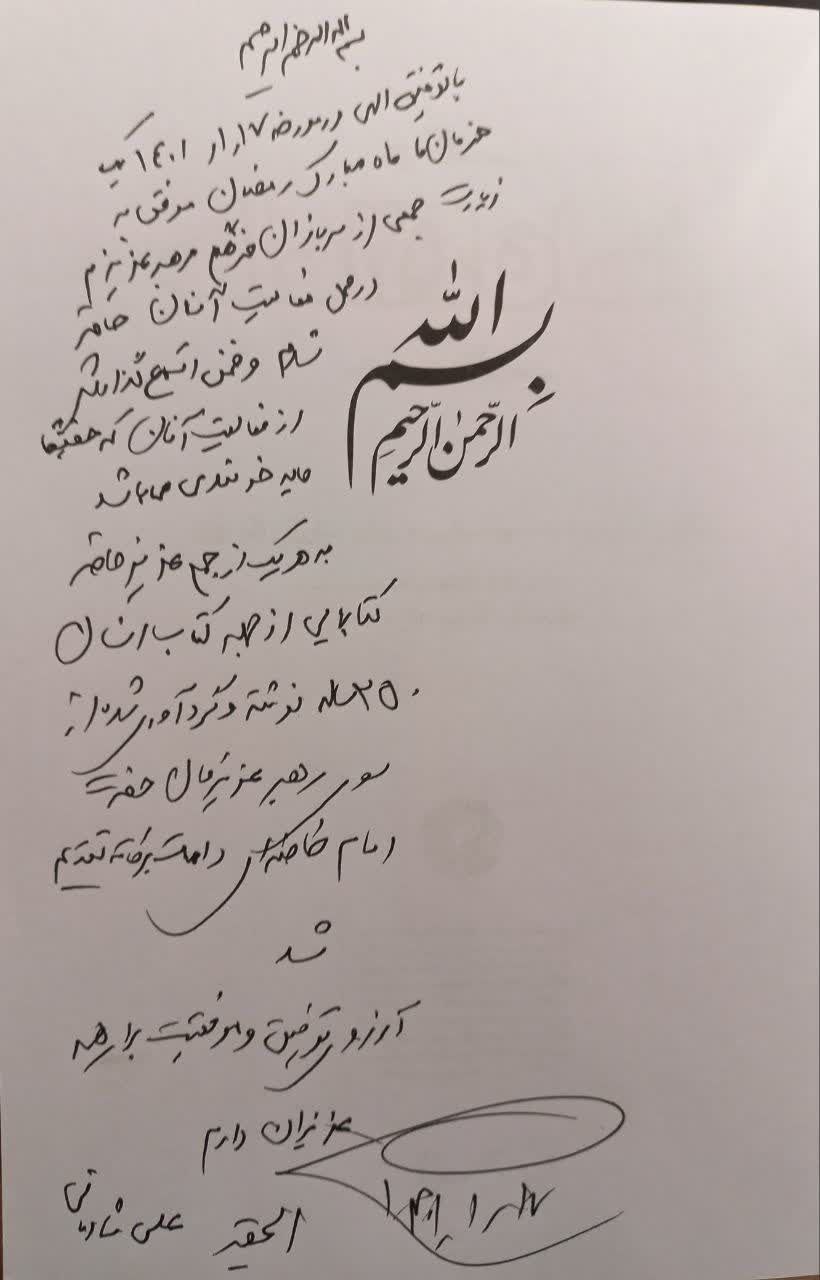 بسم الله الرحمن الرحیم
با توفیق الهی در مورخه ۱۷ر۱ر۱۴۰۱ که
همزمان با ماه مبارک رمضان موفق به
زیارت جمعی از سربازان عزیزم
در محل فعالیت آنان حاضر
شدم و ضمن استماع گزارش
از فعالیت آنان که حقیقتا
مایه خرسندی میباشد
بسم الله
الرحمن الرحیم
به هر یک از جمع عزیز حاضر
کتابهایی از جمله کتاب انسان
۲۵۰ ساله نوشته و گردآوری شده از
سوی رهبر عزیزمان حضرت
امام خامنه‌ای دامت برکاته تقدیم
شد
آرزوی توفیق و موفقیت برای همه
عزیزان دارم
الحقیر علی شادمانی